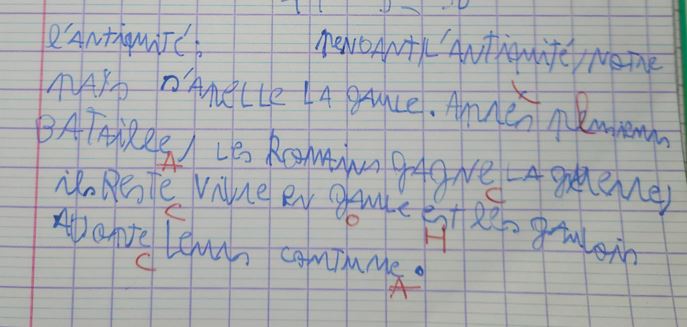 L'ANTiQUiTÉ: PENDANT/L'ANTiQUiTÉ/NOTRE
PAÏS S'APELLE LA gAULE. APRES PLUSIEURS
BATAiLLE, LES ROMAINS gAgNE LA gUERRE,
A C
ils RESTE ViVRE EN gAULE est LES gAULois
C O H
ADOPTE LEURS COUTUME.
C A